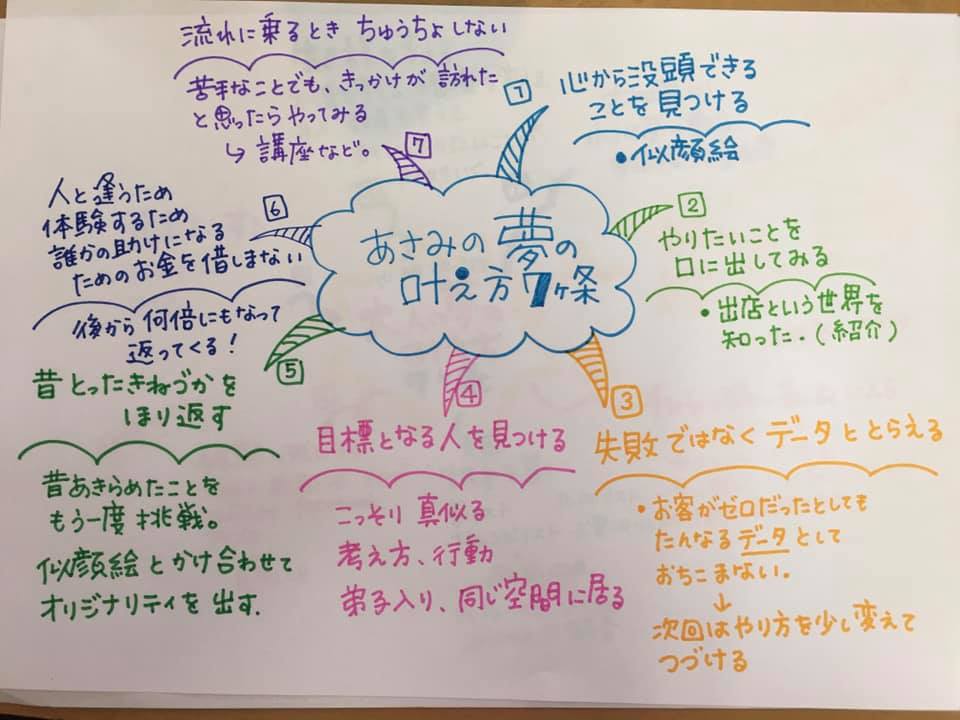 あさみの夢の
叶え方7ヶ条
1
心から没頭できる
ことを見つける
•似顔絵
2
やりたいことを
口に出してみる
•出店という世界を
知った.(紹介)
3
失敗ではなくデータととらえる
•お客がゼロだったとしても
たんなるデータとして
おちこまない.
↓
次回はやり方を少し変えて
つづける
4
目標となる人を見つける
こっそり真似る
考え方、行動
弟子入り、同じ空間に居る
5
昔とったきねづかを
ほり返す
昔あきらめたことを
もう一度挑戦。
似顔絵とかけ合わせて
オリジナリティを出す.
6
人と逢うため
体験するため
誰かの助けになる
ためのお金を借しまない
後から何倍にもなって
返ってくる!
7
流れに乗るときちゅうちょしない
苦手なことでも、きっかけが訪れた
と思ったらやってみる
↳講座など。